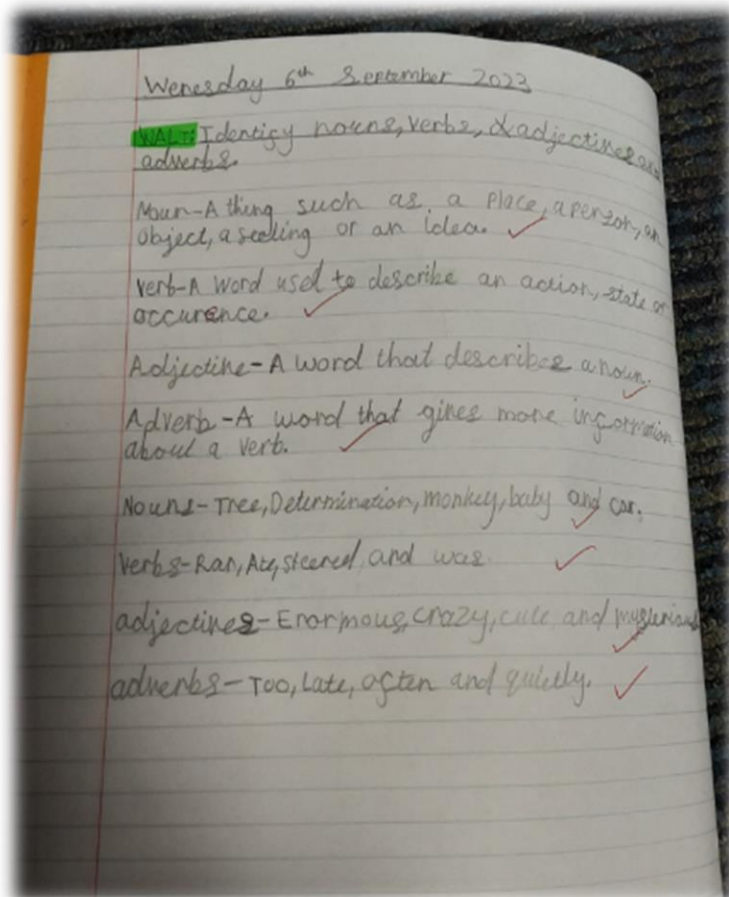 Wenesday 6th September 2023
WALT: Identify nouns, verbs, & adjectives and
adverbs.
Noun-A thing such as a place, a person, an
object, a feeling or an idea.
Verb-A word used to describe an action, state or
occurence.
Adjective-A word that describes a noun.
Adverb-A word that gives more information
about a verb.
Nouns-Tree, Determination, monkey, baby and car.
Verbs-Ran, Ate, steered, and was
adjectives-Enormous, crazy, cute and mysterious
adverbs-Too, Late, often and quietly.